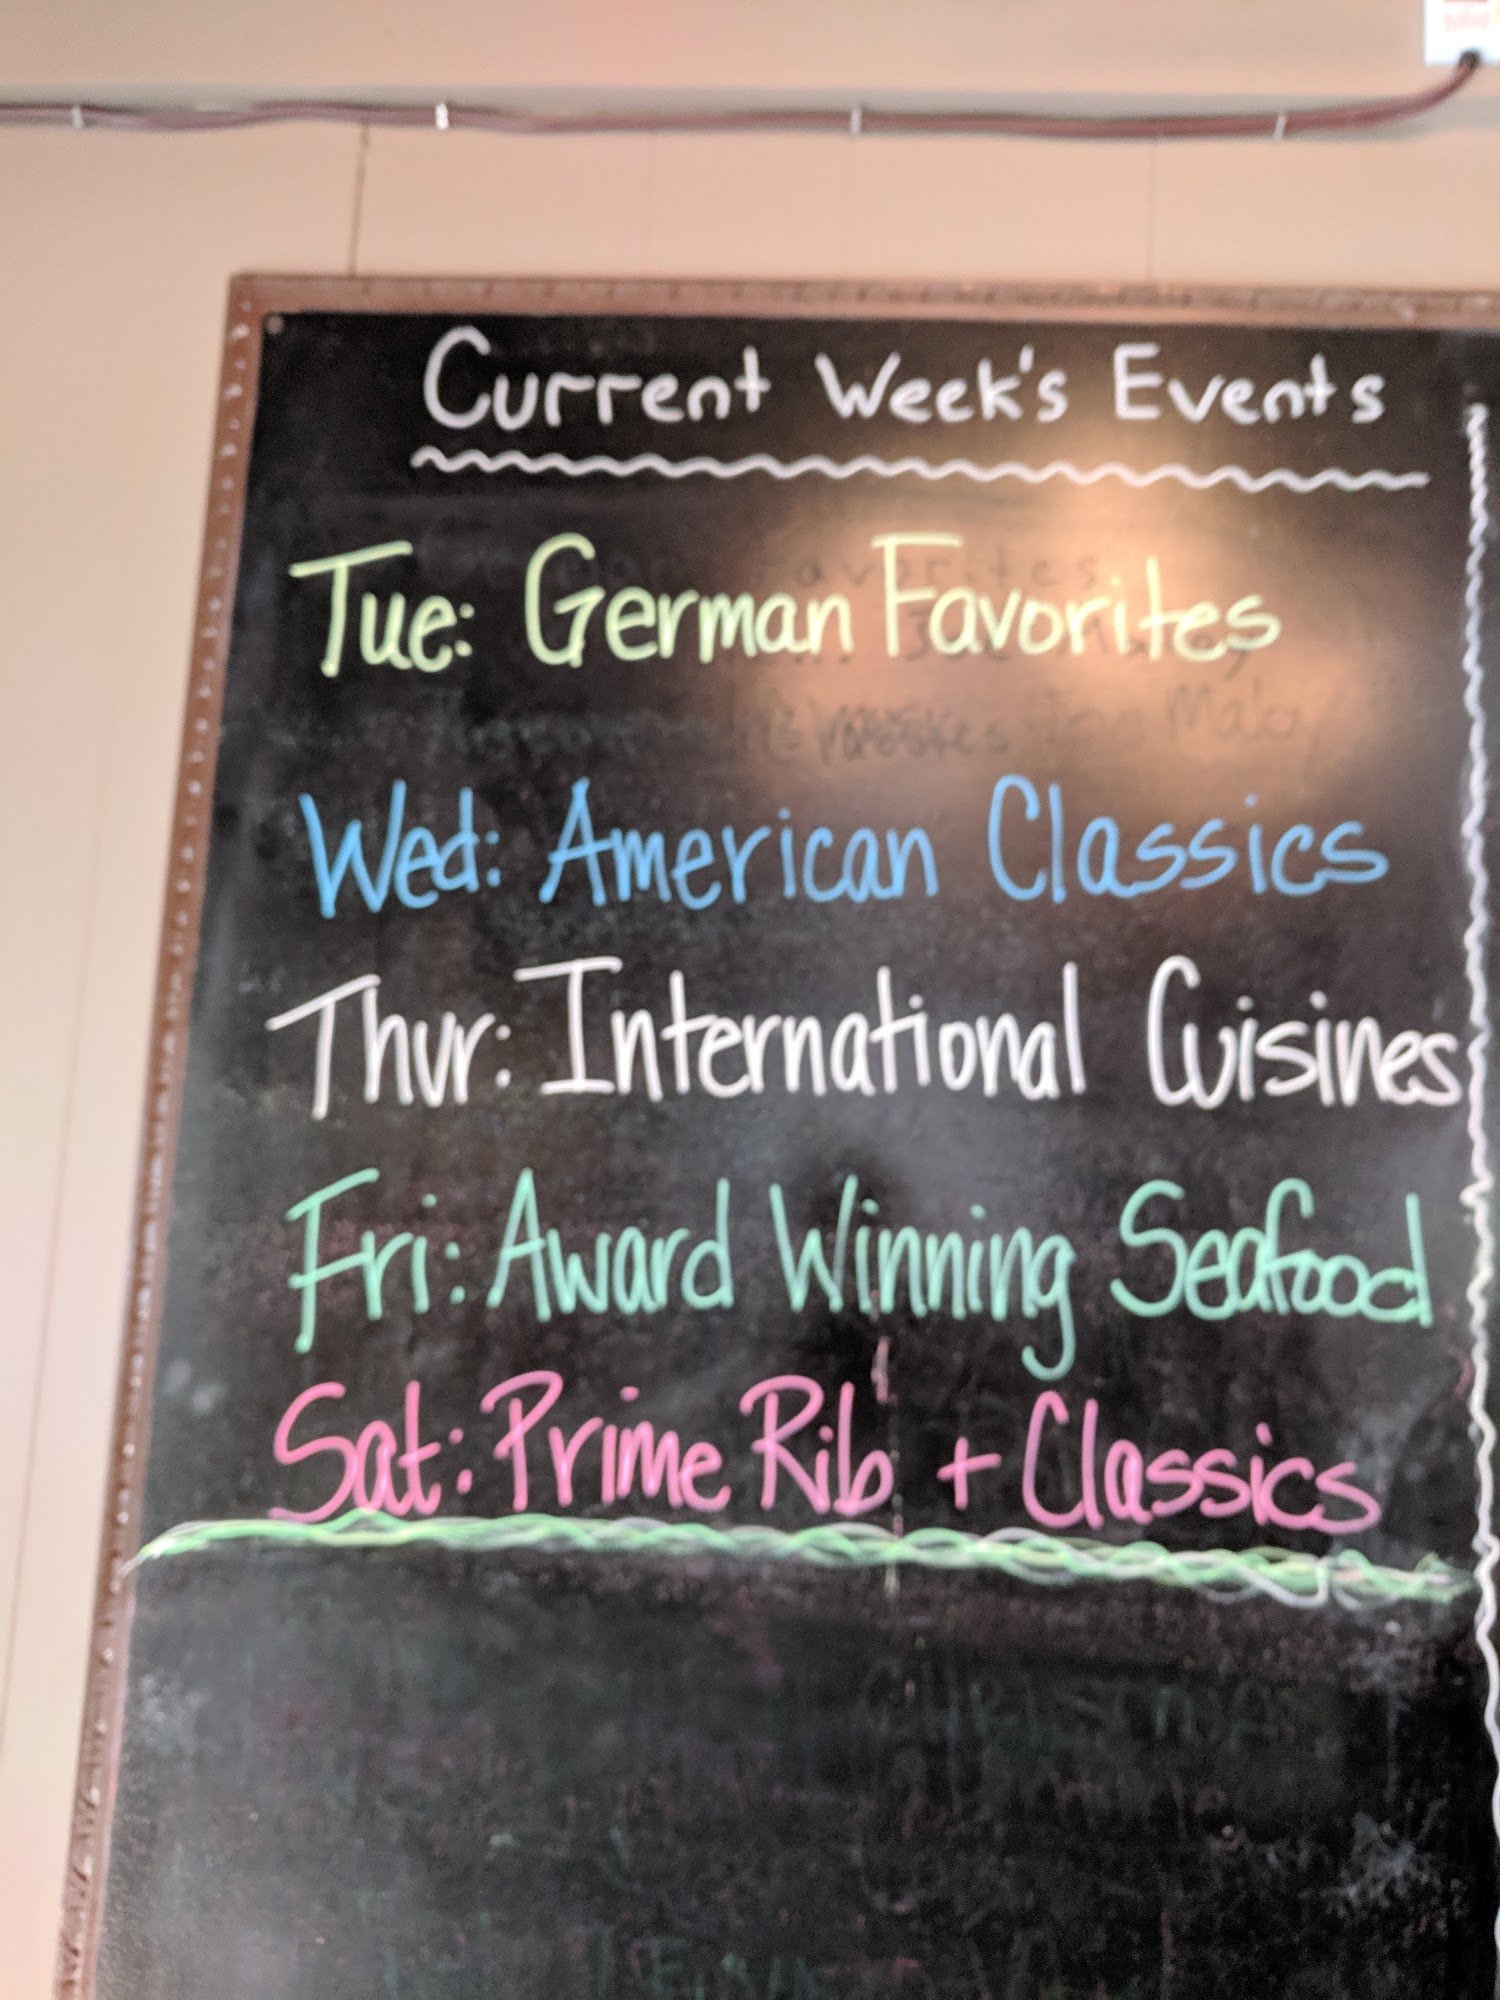 Current Week's Events
Tue: German Favorites
Wed: American Classics
Thur: International Cuisines
Fri: Award Winning Seafood
Sat: Prime Rib + Classics